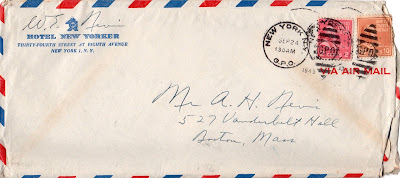 W. E. Nevin
HOTEL NEW YORKER
THIRTY-FOURTH STREET AT EIGHTH AVENUE
NEW YORK 1, N. Y.
NEW YORK, N.Y.
SEP 24
1 30 AM
1945
G.P.O.
GPO
10
VIA AIR MAIL
Mr A. H. Nevin
527 Vanderbilt Hall
Boston, Mass